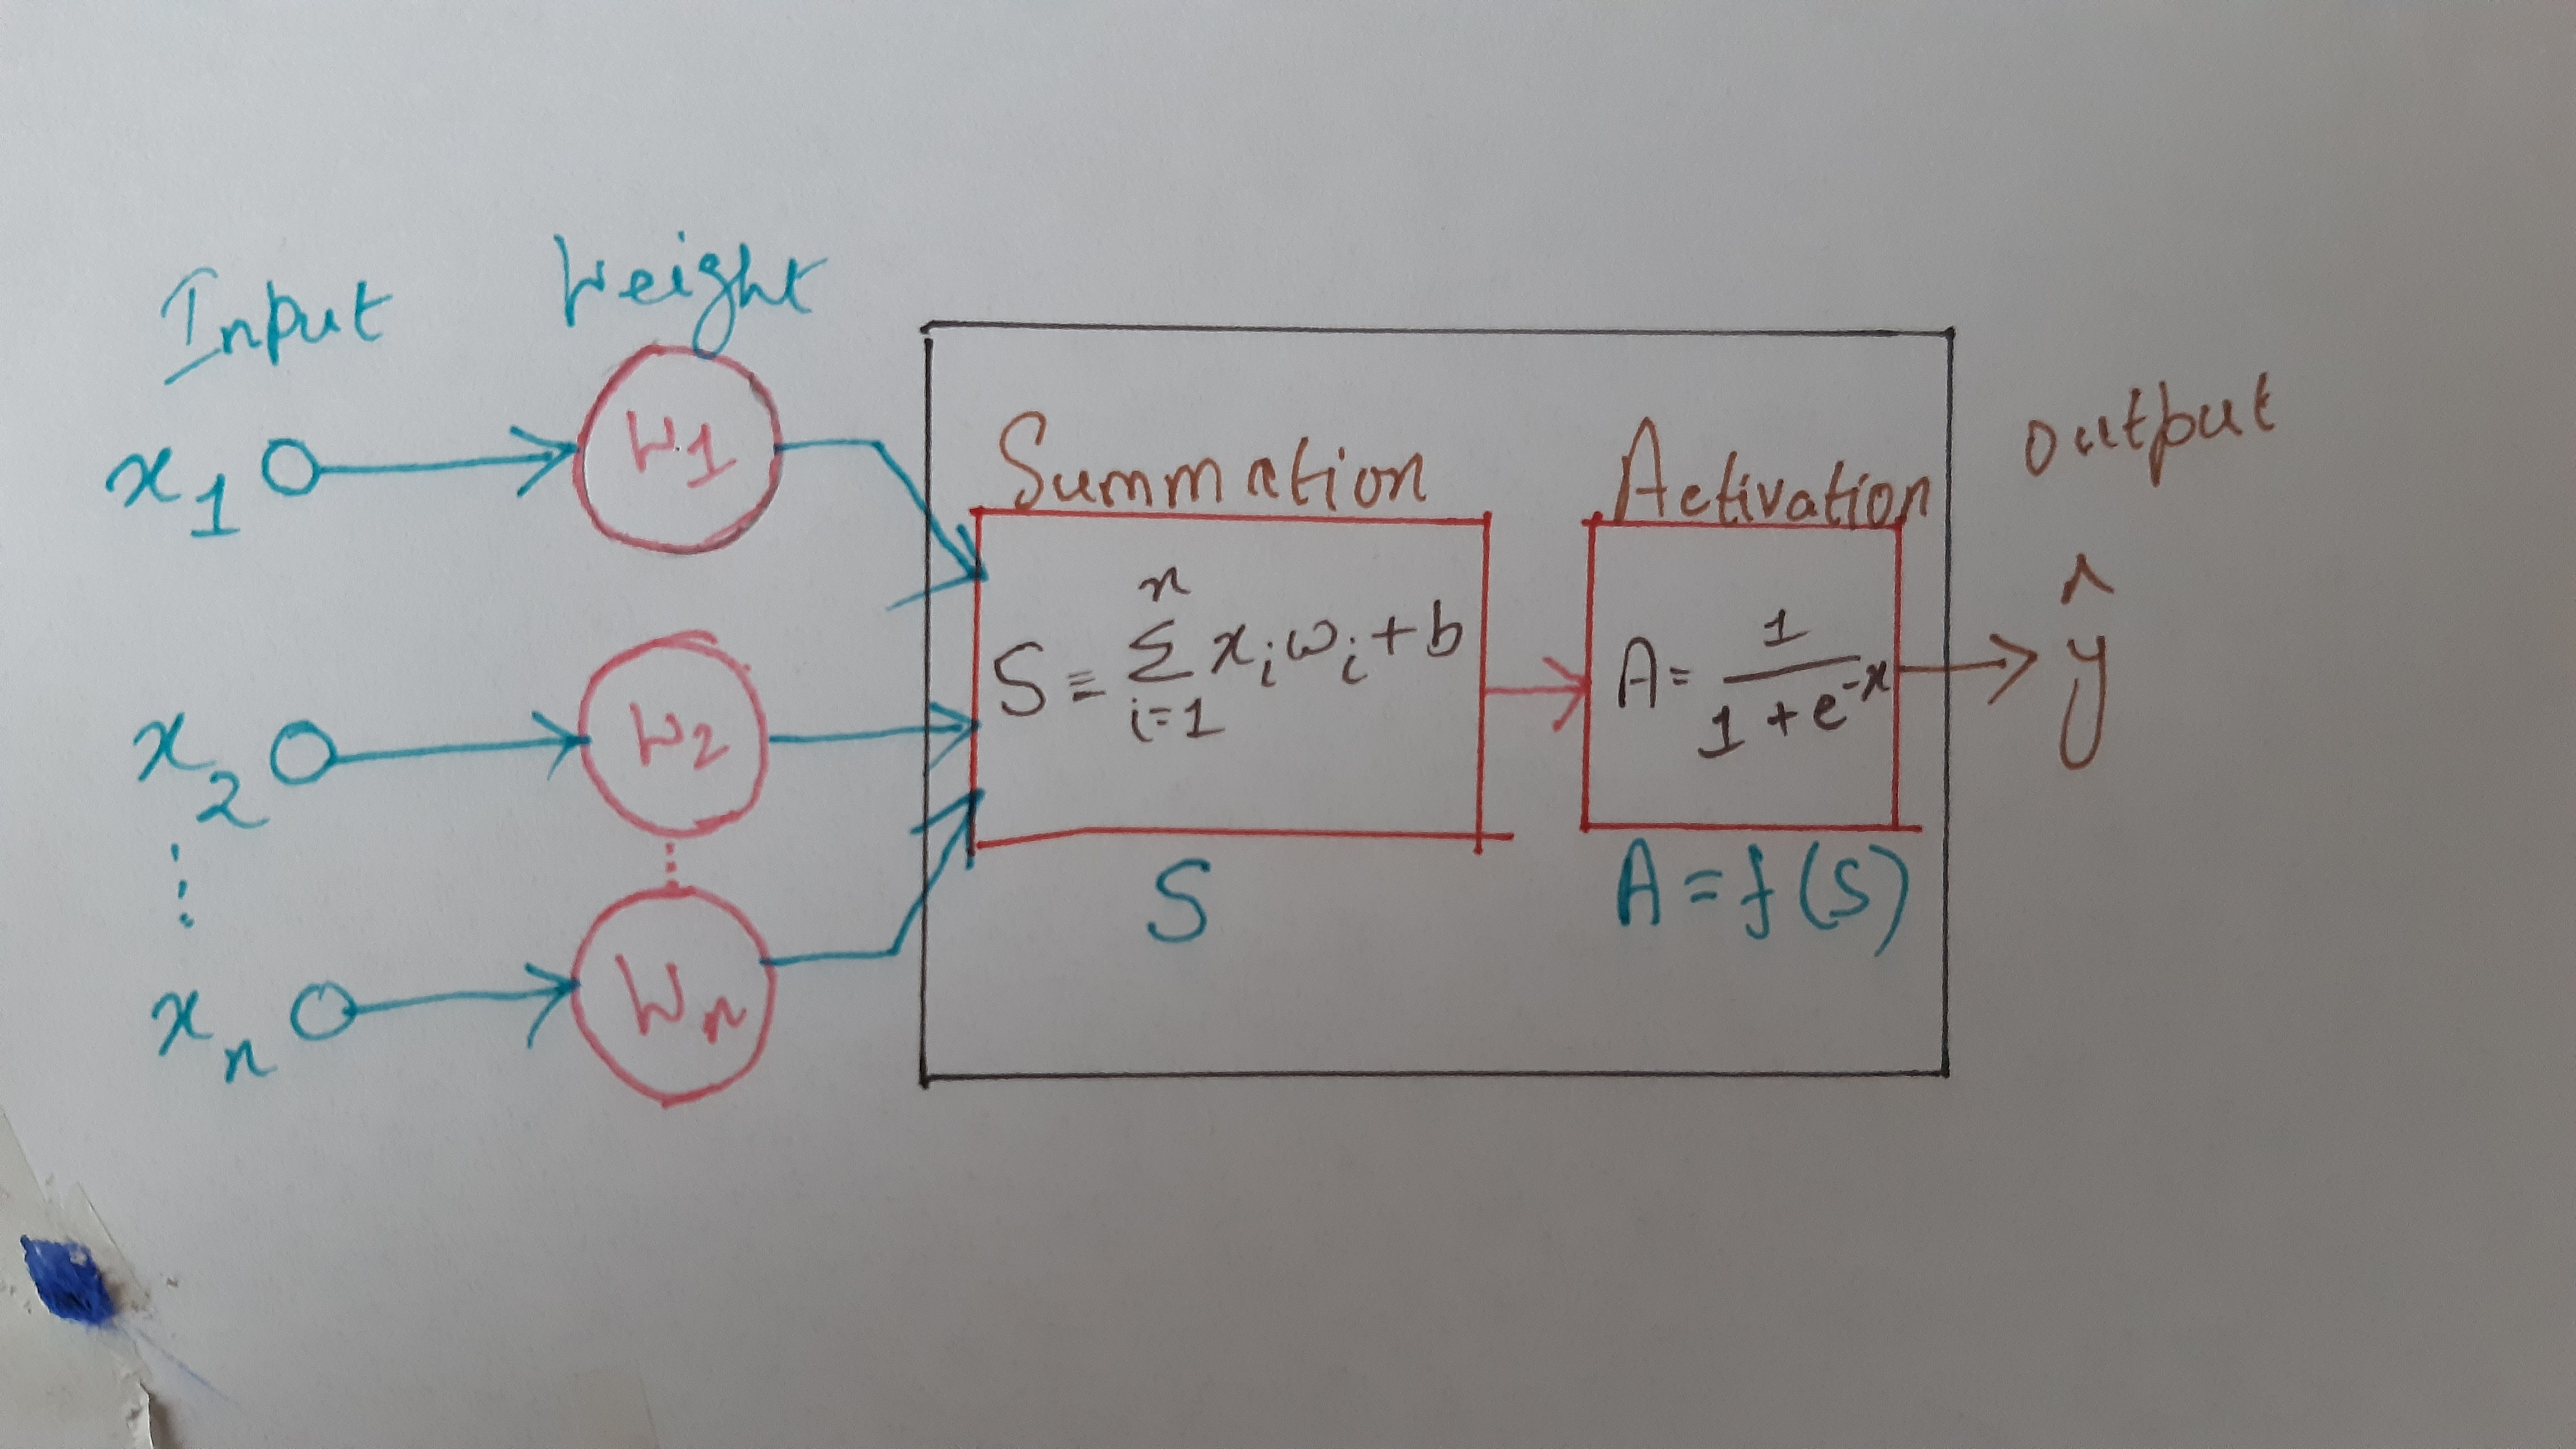 Input Weight
x1 W1
x2 W2
⋮ ⋮
xn Wn
Summation
S = n Σ i=1 xi wi + b
S
Activation
A = 1 / 1 + e^-x
A = f(S)
output
ŷ